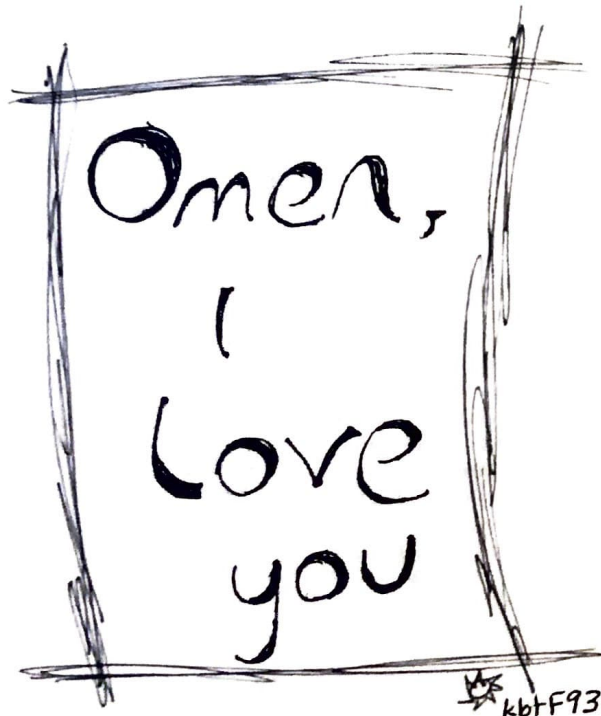 Omen,
I
Love
you
kbtF93